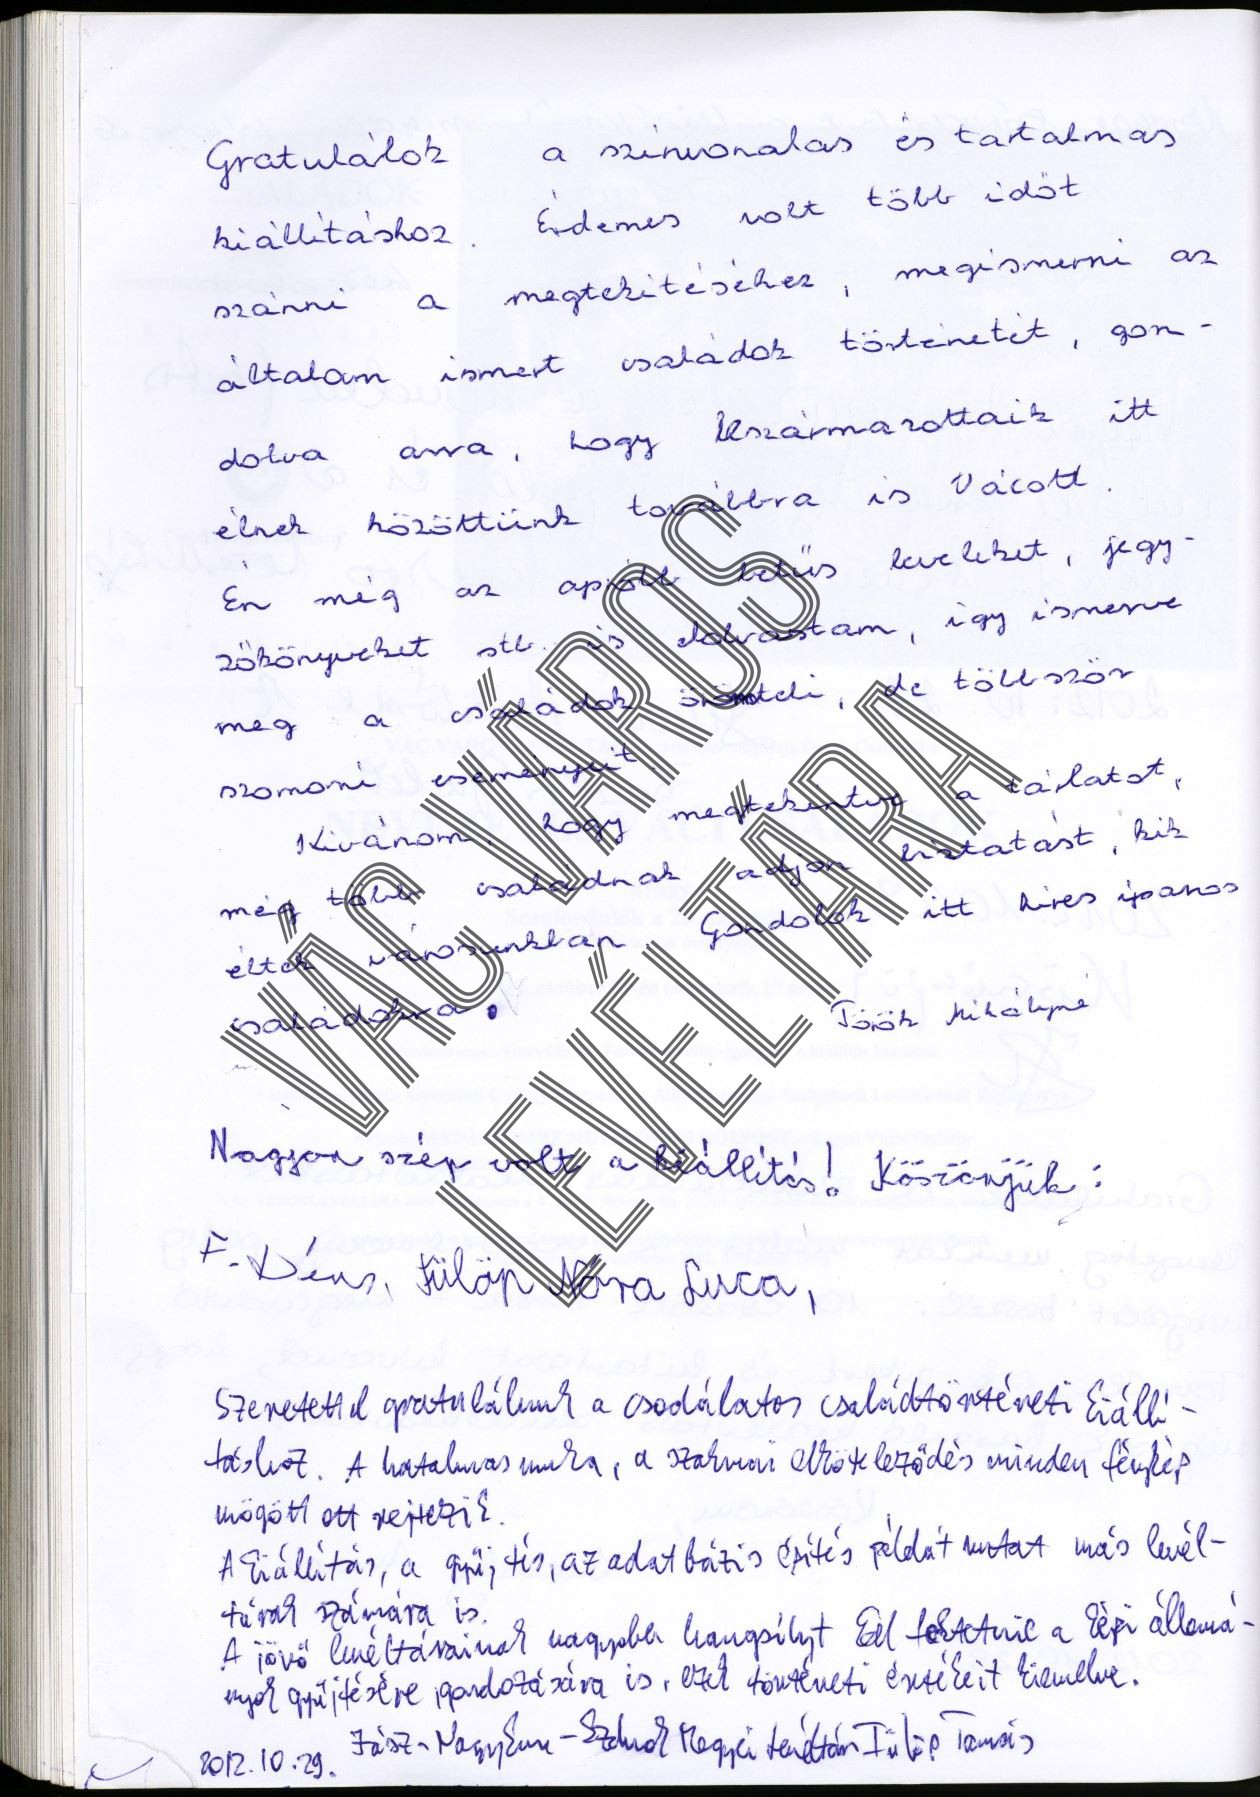 Gratulálok a szinvonalas és tartalmas
kiállításhoz. Érdemes volt több időt
szánni a megtekitéséhez, megismerni az
általam ismert családok történetét, gon-
dolva arra, hogy leszármazottaik itt
élnek közöttünk továbbra is Vácott.
Én még az apróbb betűs leveleket, jegy-
zőkönyveket stb. is elolvastam, igy ismerve
meg a családok örömteli, de többször
szomorú eseményeit
Kivánom, hogy megtekintve a tárlatot,
még több családnak adjon biztatást, kik
éltek városunkban. Gondolok itt hires iparos
családokra.
Török Mihályné
Nagyon szép volt a kiállítás! Köszönjük:
F. Dénes, Fülöp Nóra Luca,
Szeretettel gratulálunk a csodálatos családtörténeti kiállí-
táshoz. A hatalmas munka, a szakmai elkötelеződés minden fénykép
mögött ott rejtezik.
A kiállítás, a gyűjtés, az adatbázis építés példát mutat más levél-
tárak számára is.
A jövő levéltárainak nagyobb hangsúlyt kell fektetnie a képi állomá-
nyok gyűjtésére, gondozására is, ezek történeti értékeit kiemelve.
2012.10.29. Jász-Nagykun-Szolnok Megyei Levéltár Fülöp Tamás
VÁC VÁROS
LEVÉLTÁRA